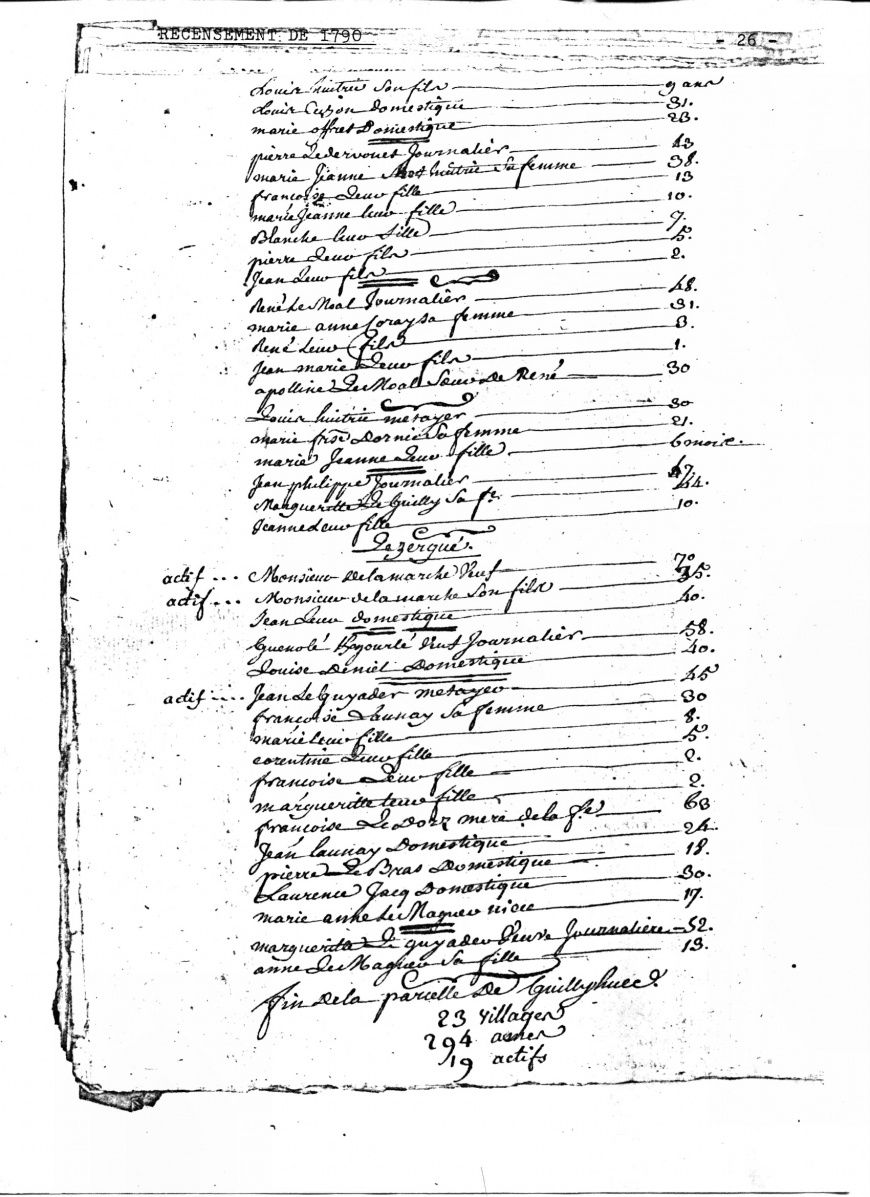 RECENSEMENT DE 1790 - 26 -
Louis huitric son fils 9 ans
Louis Cuzon domestique 31.
marie offret Domestique 23.
pierre Ledervouet Journalier 43
marie Jeanne huitric Sa femme 38.
francoise Leur fille 13
marie Jeanne leur fille 10.
Blanche leur fille 7.
pierre Leur fils 5.
Jean Leur fils 2.
René Le Moal Journalier 48.
marie anne Coray sa femme 31.
René Leur fils 3.
Jean marie Leur fils 1.
apolline Le Moal Soeur de René 30
Louis huitric metayer 30
marie frse Dornic Sa femme 21.
marie Jeanne Leur fille 6 mois.
Jean philippe Journalier 47.
Margueritte Le Guilly Sa fe 44.
Jeanne Leur fille 10.
Lezergué.
actif ... Monsieur Delamarche Veuf 70
actif ... Monsieur de la marche Son fils 35.
Jean Leur domestique 40.
Guenolé Veuf Journalier 58.
Louise Deniel Domestique 40.
actif .... Jean Le Guyader metayer 45
francoise Launay Sa femme 30
marie leur fille 8.
corentine Leur fille 5.
francoise Leur fille 2.
margueritte leur fille 2.
francoise Le Dorz mere de la fe 63
Jean Launay Domestique 24.
pierre Le Bras Domestique 18.
Laurence Jacq Domestique 30.
marie anne Le Magueur niece 17.
margueritte Le guyader Veuve Journaliere 52.
anne Le Magueur Sa fille 13.
fin de la parcelle De Guillyhuec.
23 villages
294 ames
19 actifs